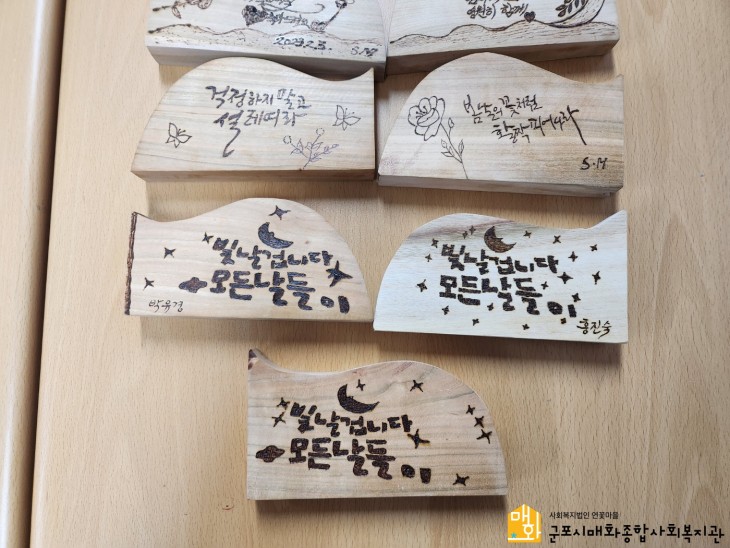 2023.2.3. S.M
영원히 함께
걱정하지 말고
설레어라
봄날의 꽃처럼
활짝 피어나라
S.M
빛날겁니다
모든날들이
박유경
빛날겁니다
모든날들이
홍진숙
빛날겁니다
모든날들이
매화
사회복지법인 연꽃마을
군포시매화종합사회복지관